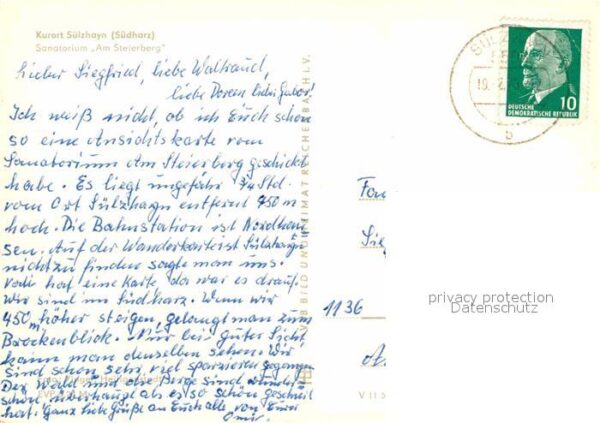 Kurort Sülzhayn (Südharz)
Sanatorium „Am Steierberg"
Lieber Siegfried, liebe Waltraud,
liebe Doreen lieber Gabor!
Ich weiß nicht, ob ich Euch schon
so eine Ansichtskarte vom
Sanatorium Am Steierberg geschickt
habe. Es liegt ungefähr 3/4 Std.
vom Ort Sülzhayn entfernt 450 m
hoch. Die Bahnstation ist Nordhau
sen. Auf der Wanderkarte ist Sülzhayn
nicht zu finden sagte man uns.
Vati hat eine Karte, da war es drauf.
Wir sind im Südharz. Wenn wir
450 m höher steigen, gelangt man zum
Brockenblick. Nur bei guter Sicht
kann man denselben sehen. Wir
sind schon sehr viel spazieren gegangen
Der Wald und die Berge sind
schön, überhaupt als es so schön geschneit
hat. Ganz liebe Grüße an Euch alle, von Eurer
Omi.
VEB BILD UND HEIMAT REICHENBACH I. V.
V 11 5
SÜLZ
19. 2.
b
DEUTSCHE
DEMOKRATISCHE REPUBLIK
10
Fa
Sie
1136
privacy protection
Datenschutz